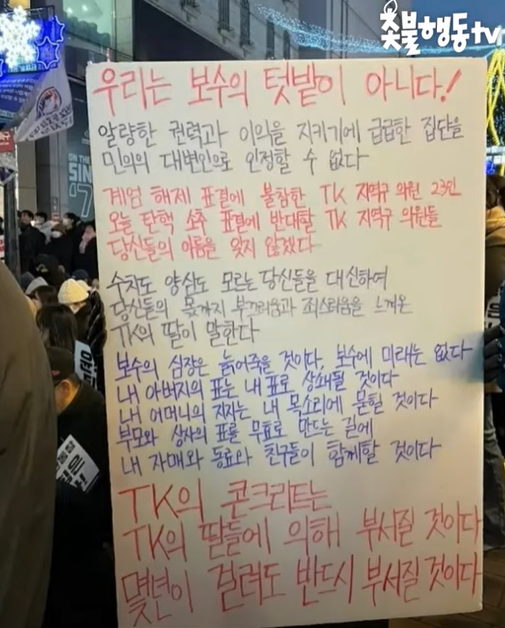 촛불행동tv
우리는 보수의 텃밭이 아니다!
알량한 권력과 이익을 지키기에 급급한 집단을
민의의 대변인으로 인정할 수 없다
계엄 해제 표결에 불참한 TK 지역구 의원 23인
오늘 탄핵 소추 표결에 반대할 TK 지역구 의원들
당신들의 이름을 잊지 않겠다
수치도 양심도 모르는 당신들을 대신하여
당신들의 몫까지 부끄러움과 죄스러움을 느껴온
TK의 딸이 말한다
보수의 심장은 늙어죽을 것이다, 보수에 미래는 없다
내 아버지의 표는 내 표로 상쇄될 것이다
내 어머니의 지지는 내 목소리에 묻힐 것이다
부모와 상사의 표를 무효로 만드는 길에
내 자매와 동료와 친구들이 함께할 것이다
TK의 콘크리트는
TK의 딸들에 의해 부서질 것이다
몇년이 걸려도 반드시 부서질 것이다
ON THE
SINCE
'7